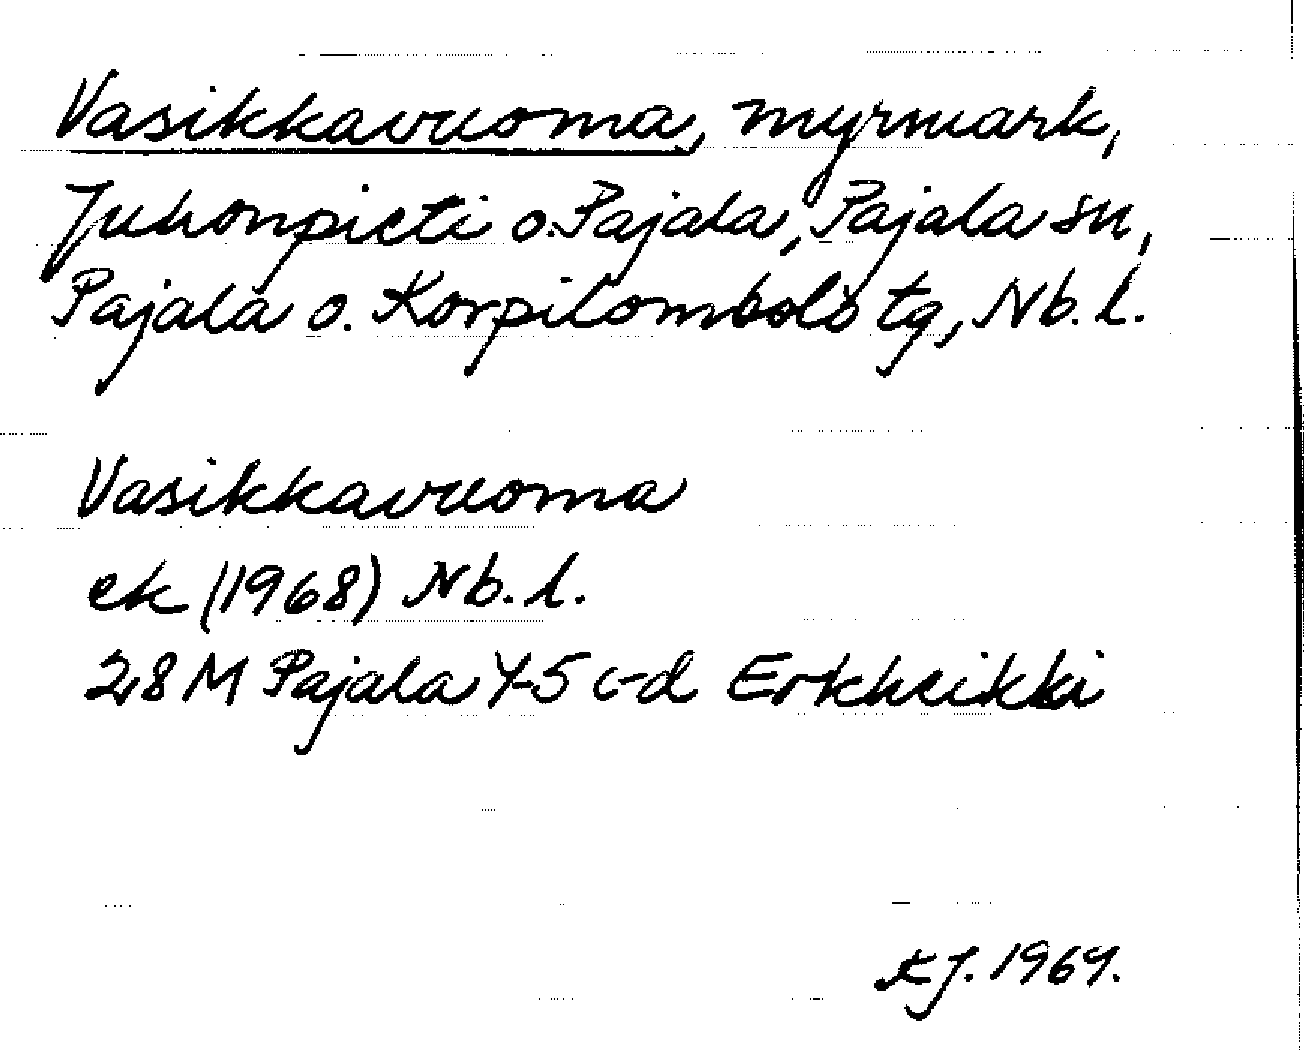 Vasikkavuoma, myrmark,
Juhonpieti o. Pajala, Pajala sn,
Pajala o. Korpilombolo tg, Nb. l.
Vasikkavuoma
ek (1968) Nb. l.
28M Pajala 4-5 c-d Erkheikki
1964.